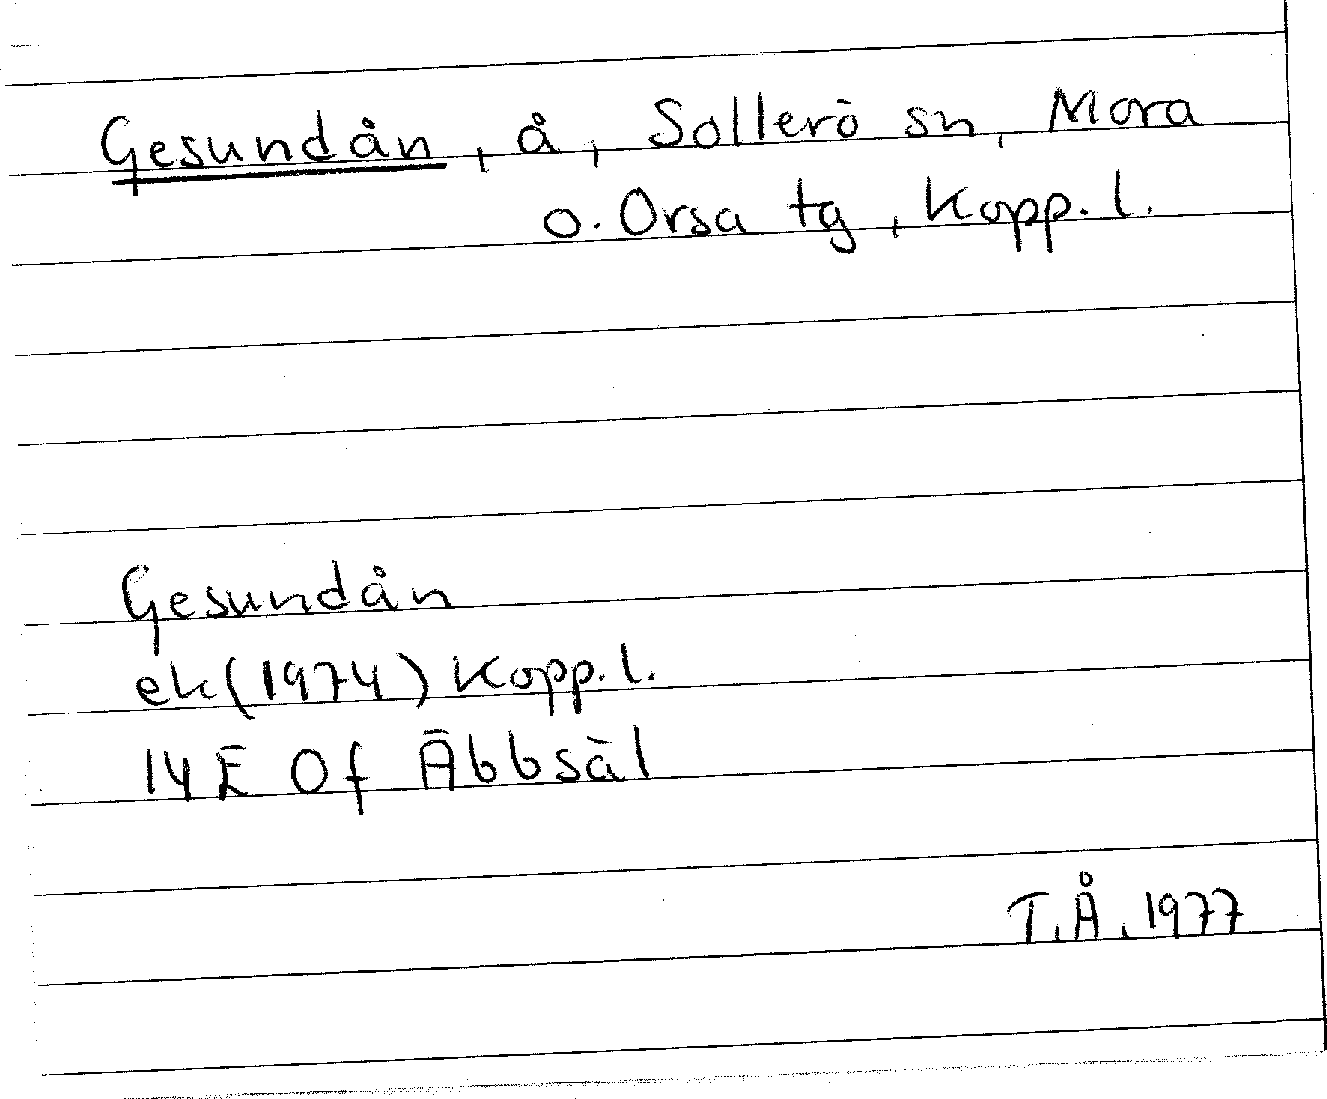 Gesundån, å, Sollerö sn, Mora
o. Orsa tg, Kopp. l.
Gesundån
ek (1974) Kopp. l.
14E 0f Äbbsäl
T.Å. 1977